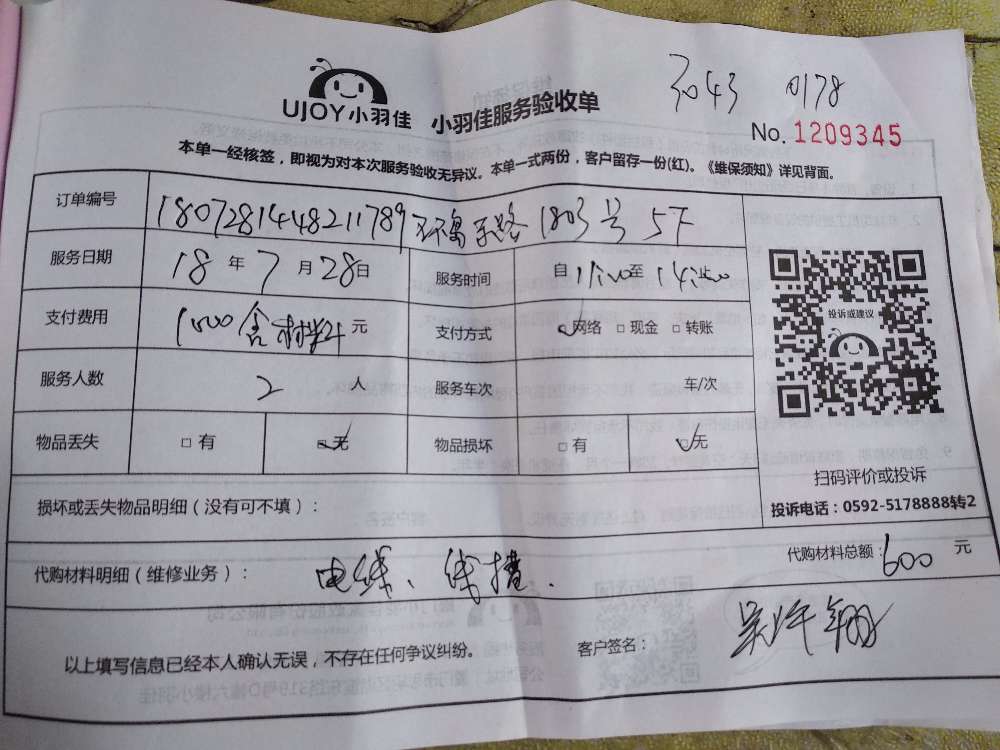 3043 0178
UJOY小羽佳 小羽佳服务验收单
No. 1209345
本单一经核签，即视为对本次服务验收无异议。本单一式两份，客户留存一份(红)。《维保须知》详见背面。
订单编号 1807281448211789 环岛东路1803号5F
服务日期 18年7月28日 服务时间 自11:00至14:00
支付费用 1500含材料元 支付方式 网络 □现金 □转账
服务人数 2人 服务车次 车/次
投诉或建议
物品丢失 □有 □无 物品损坏 □有 □无
扫码评价或投诉
投诉电话：0592-5178888转2
损坏或丢失物品明细（没有可不填）：
代购材料明细（维修业务）： 电线、线槽. 代购材料总额：600元
以上填写信息已经本人确认无误，不存在任何争议纠纷。 客户签名：